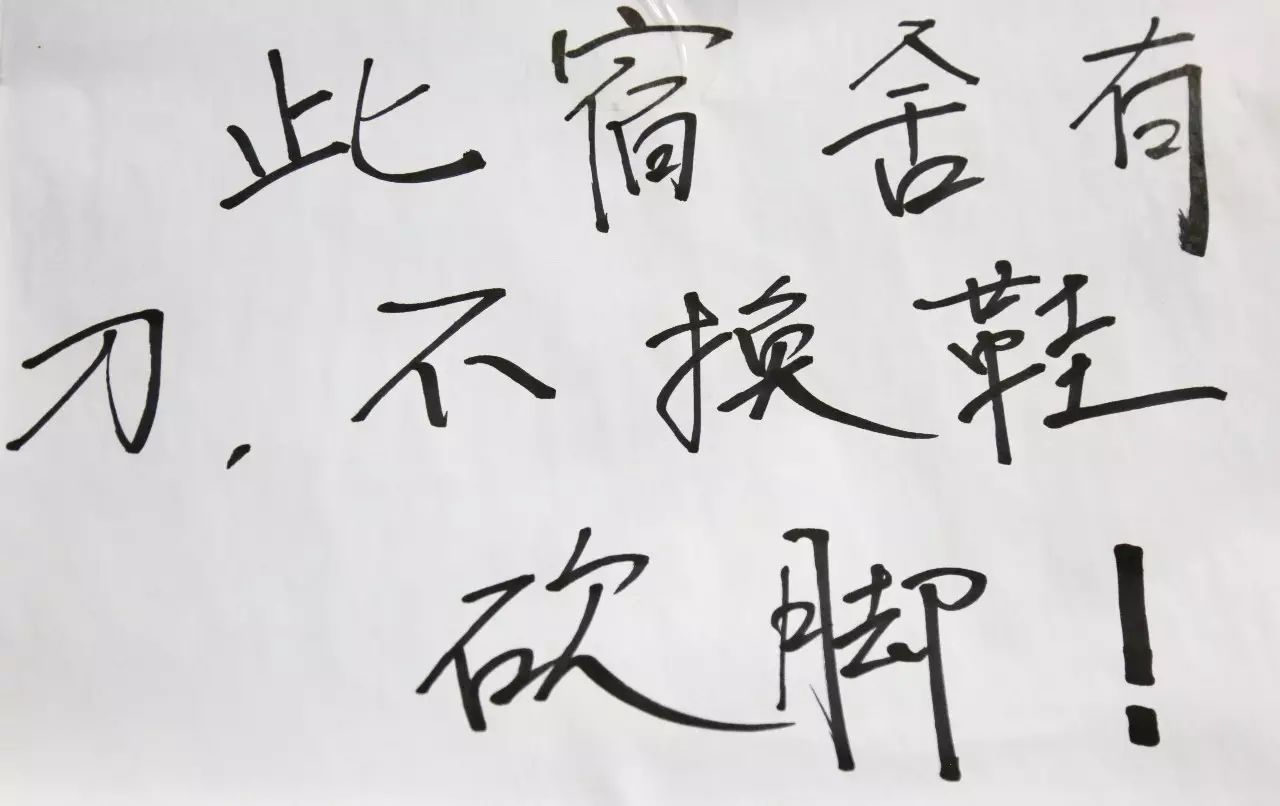 此宿舍有
刀,不换鞋
砍脚!